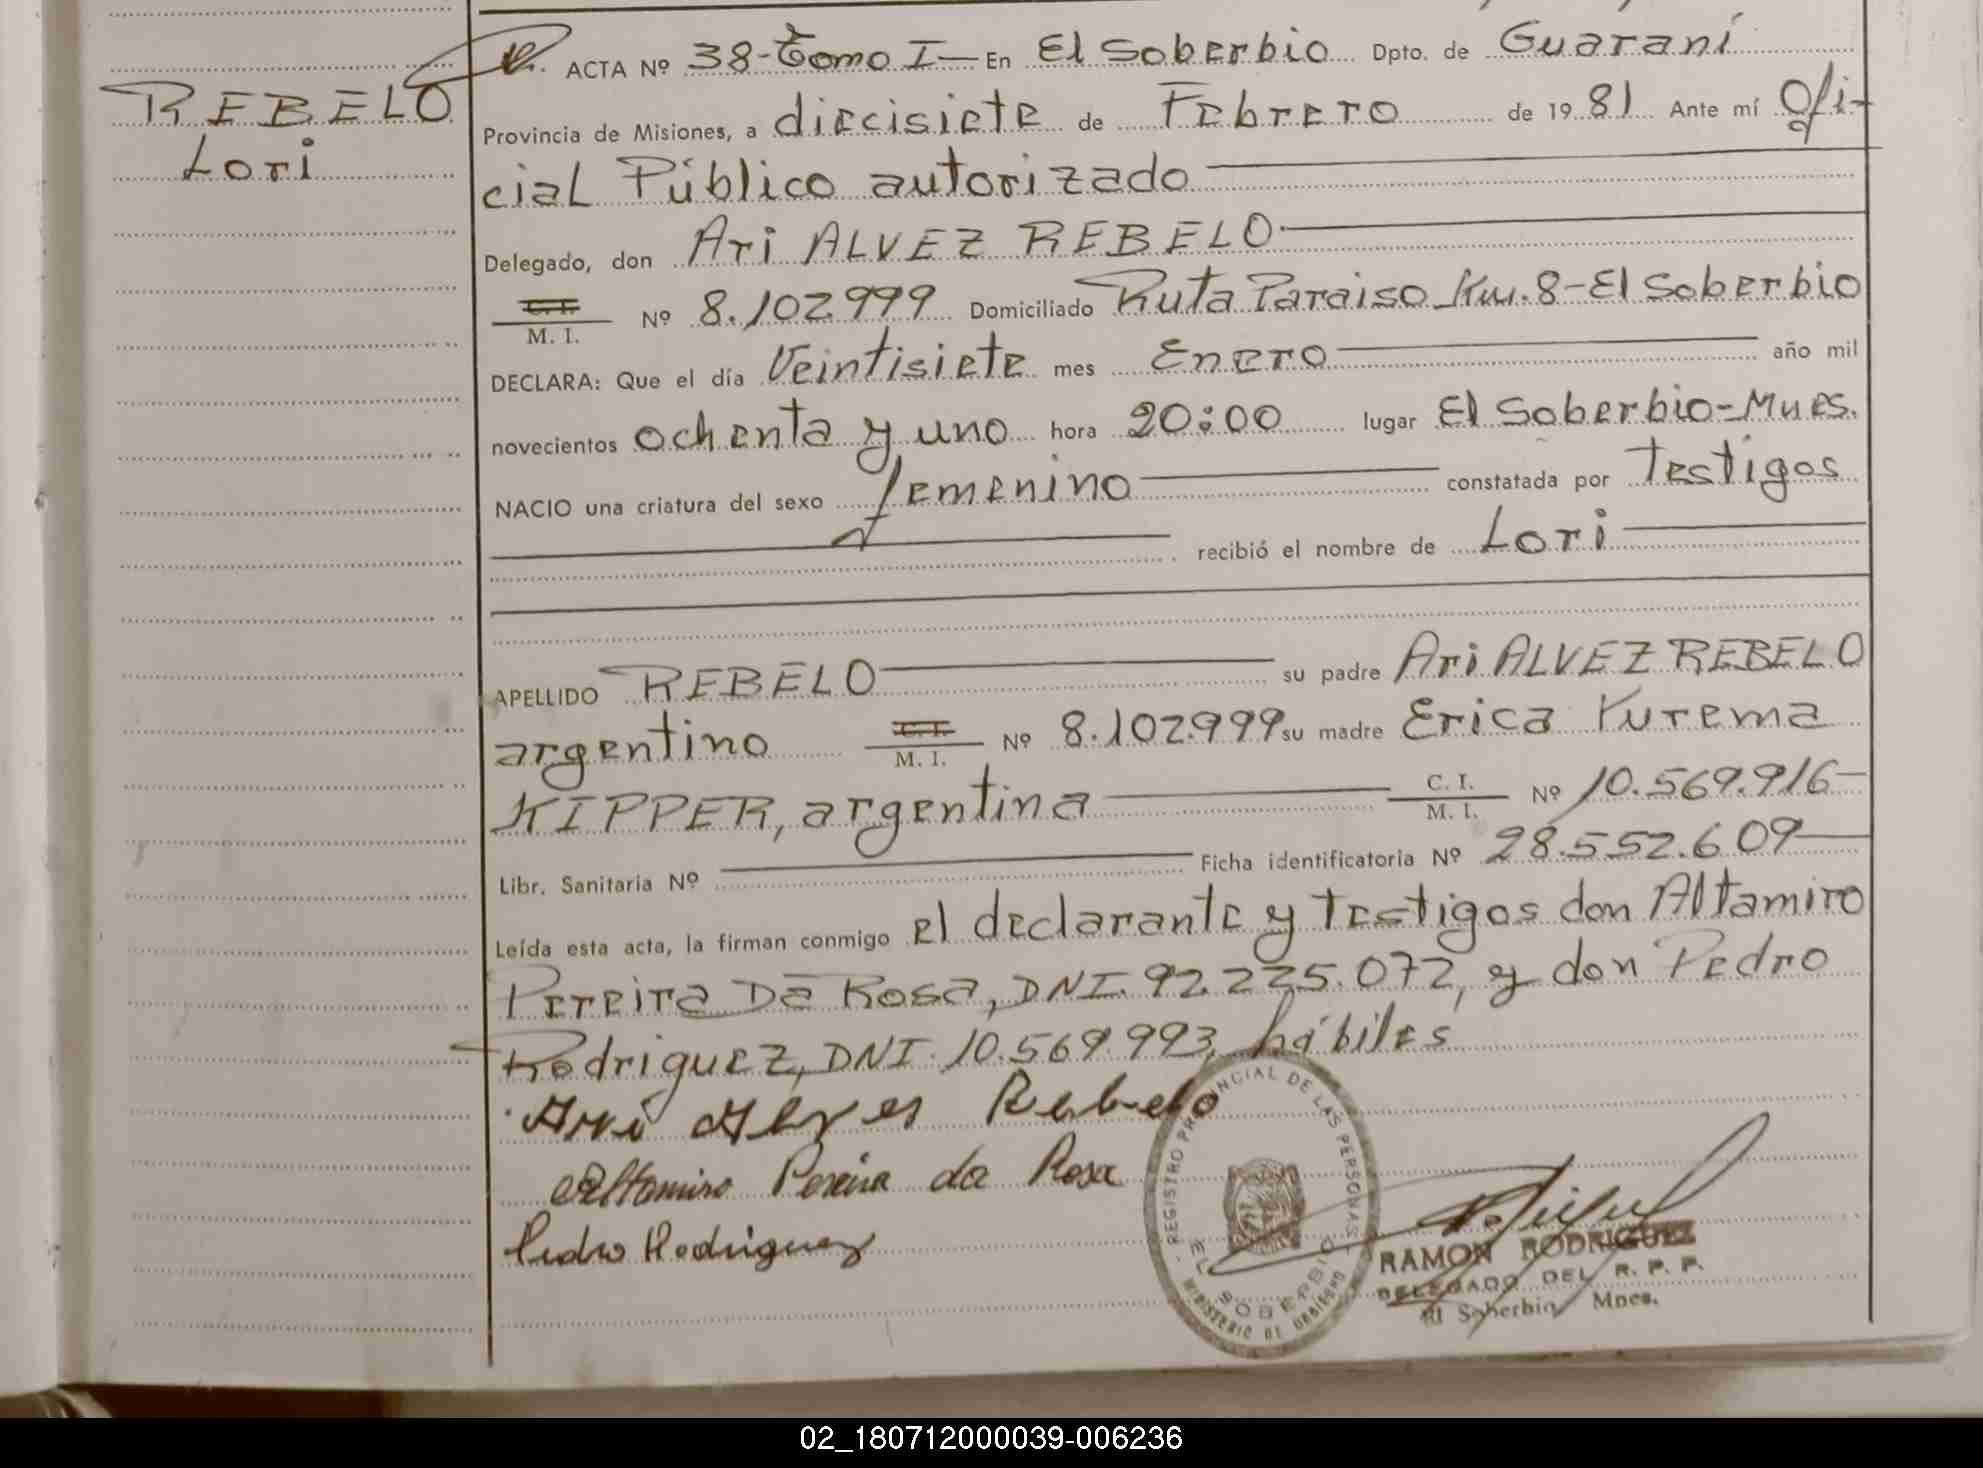 REBELO
Lori
ACTA Nº 38-Tomo I- En El Soberbio Dpto. de Guaraní
Provincia de Misiones, a diecisiete de Febrero de 1981 Ante mí Ofi-
cial Público autorizado
Delegado, don Ari ALVEZ REBELO
C. I.
M. I. Nº 8.102.999 Domiciliado Ruta Paraiso Km. 8-El Soberbio
DECLARA: Que el día Veintisiete mes Enero año mil
novecientos ochenta y uno hora 20:00 lugar El Soberbio-Mnes.
NACIO una criatura del sexo femenino constatada por testigos
recibió el nombre de Lori
APELLIDO REBELO su padre Ari ALVEZ REBELO
argentino C. I. M. I. Nº 8.102.999 su madre Erica Yurema
KIPPER, argentina C. I. M. I. Nº 10.569.916-
Libr. Sanitaria Nº Ficha identificatoria Nº 28.552.609
Leída esta acta, la firman conmigo el declarante y testigos don Altamiro
Pereira Da Rosa, DNI. 92.225.072, y don Pedro
Rodriguez, DNI. 10.569.993, hábiles
Ari Alves Rebelo
Altamiro Pereira da Rosa
Pedro Rodriguez
REGISTRO PROVINCIAL DE LAS PERSONAS
EL SOBERBIO
MINISTERIO DE GOBIERNO
RAMON RODRIGUEZ
DELEGADO DEL R. P. P.
El Soberbio Mnes.
02_180712000039-006236